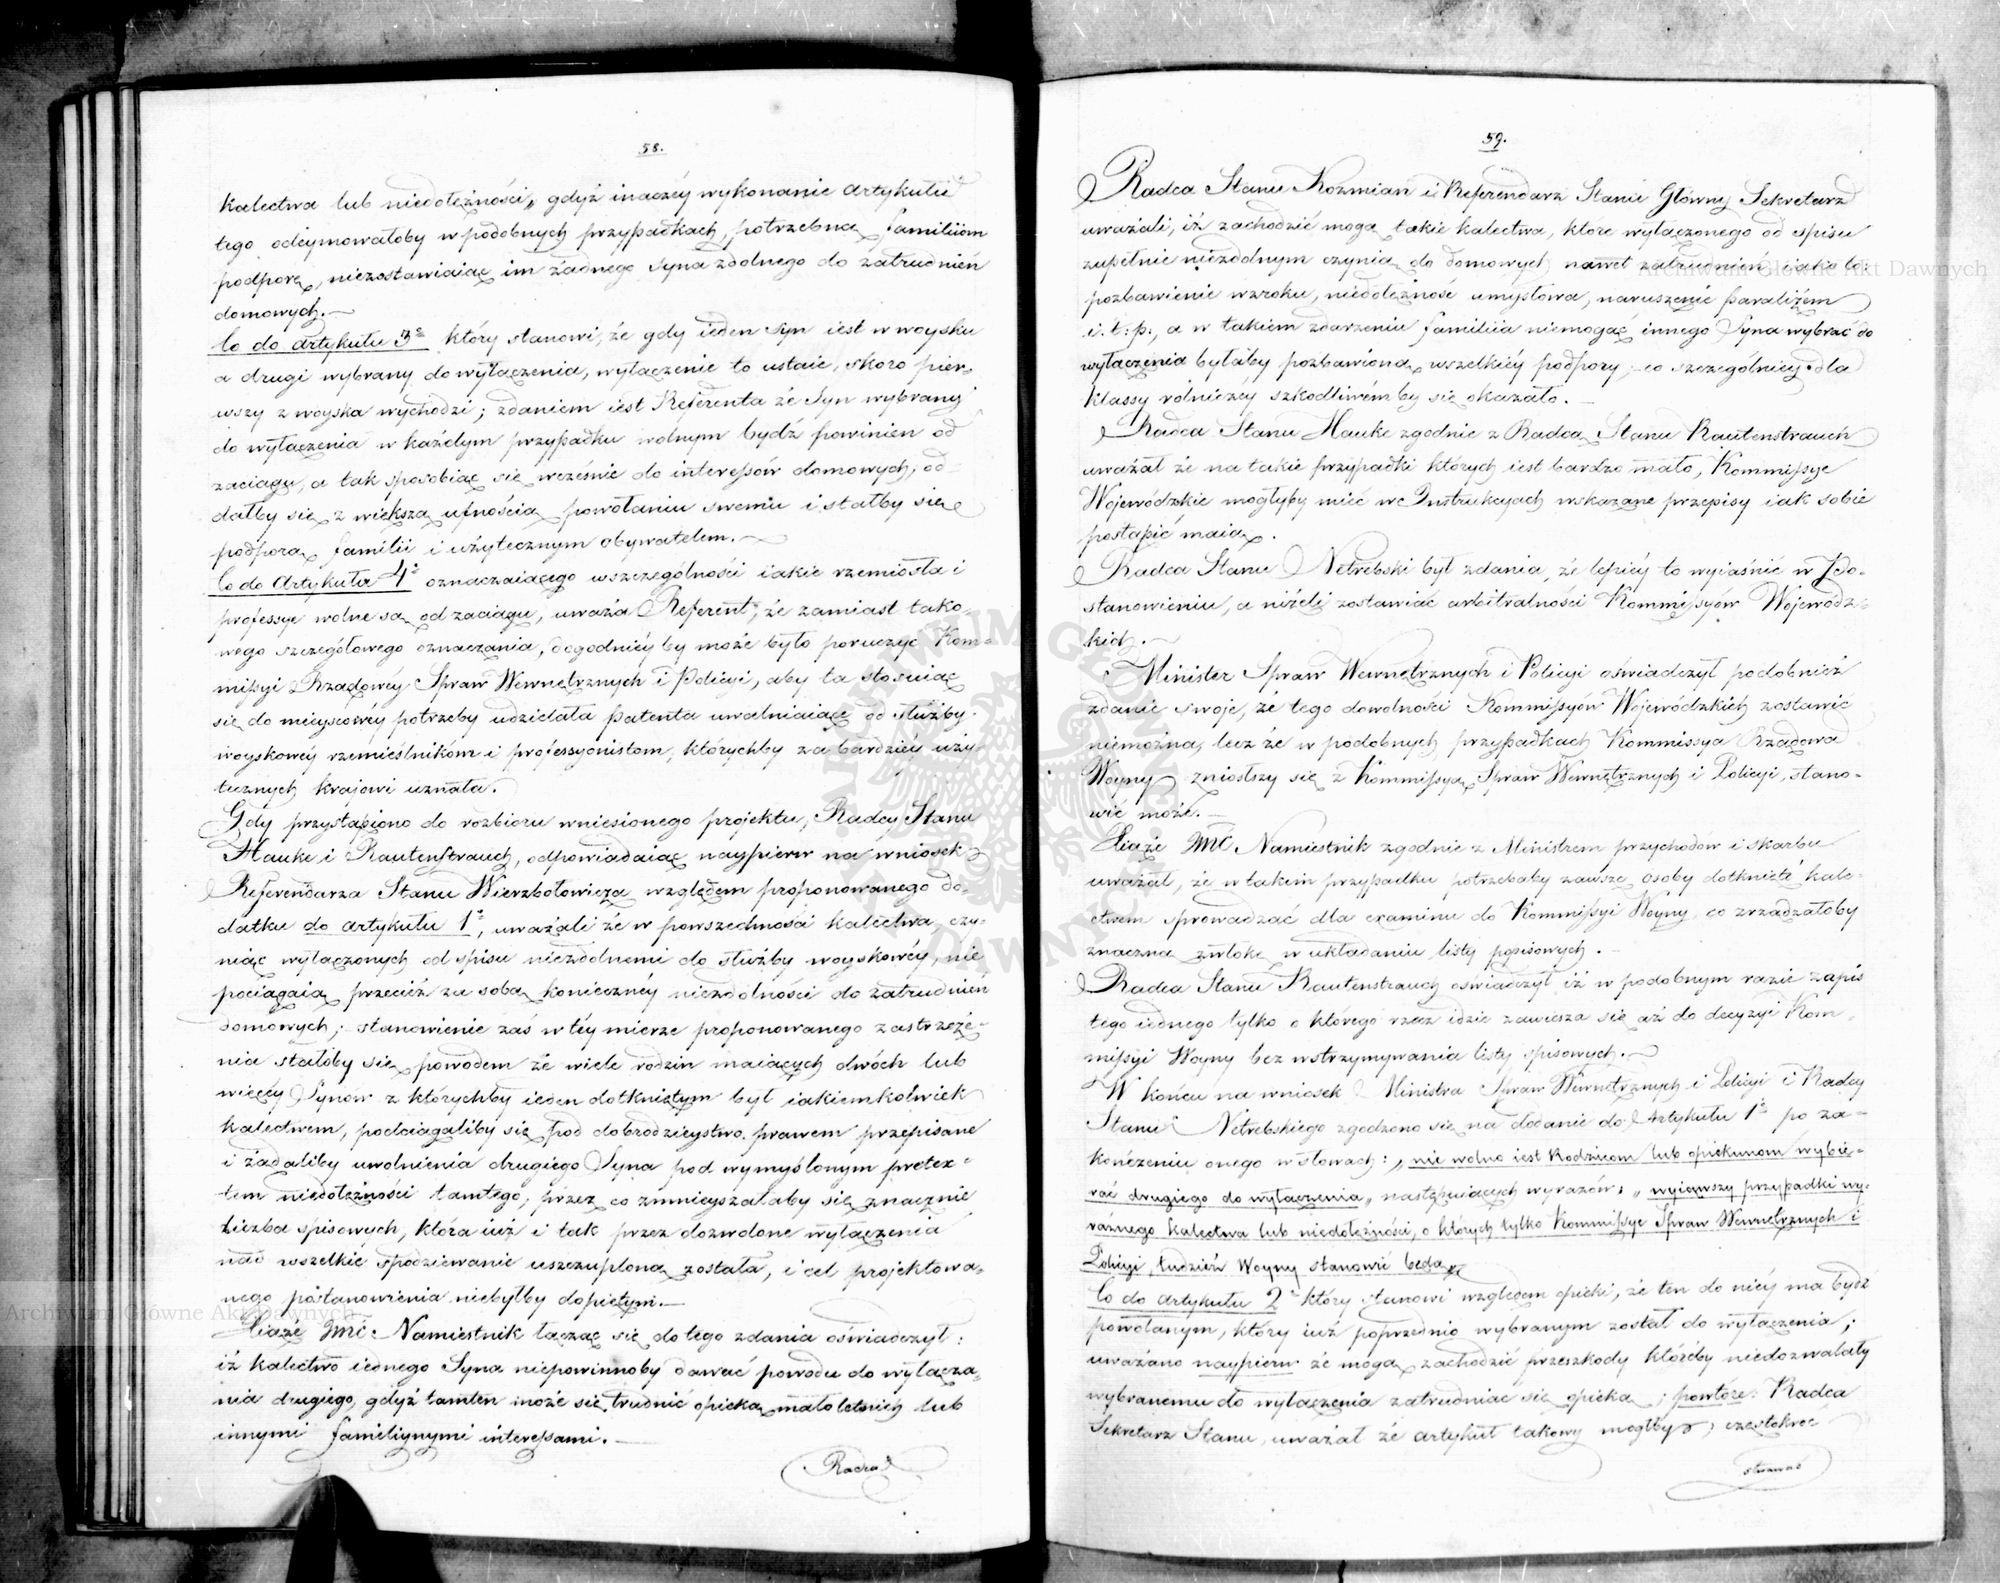 58.
kalectwa lub niedołężności„ gdyż inaczéy wykonanie artykułu
tego odeymowałoby w podobnych przypadkach, potrzebną familiiom
podporę, niezostawiaiąc im żadnego Syna zdolnego do zatrudnień
domowych.—
Co do artykułu 3º który stanowi, że gdy ieden Syn iest w woysku
a drugi wybrany do wyłączenia, wyłączenie to ustaie, skoro pier-
wszy z woyska wychodzi; zdaniem iest Referenta że Syn wybrany
do wyłączenia w każdym przypadku wolnym bydź powinien od
zaciągu, a tak sposobiąc się wcześnie do interessów domowych, od-
dałby się z większą ufnością powołaniu swemu i stałby się
podporą familii i użytecznym obywatelem.—
Co do Artykułu 4º oznaczaiącego wszczególności iakie rzemiosła i
professye wolne są od zaciągu, uważa Referent, że zamiast tako-
wego szczegółowego oznaczania, dogodniéy by może było poruczyć Kom-
missyi Rządowéy Spraw Wewnętrznych i Policyi, aby ta stosuiąc
się do mieyscowéy potrzeby udzielała patenta uwalniaiące od służby
woyskowéy rzemieślnikóm i professyonistom, którychby za bardziéy uży-
tecznych krajowi uznała.
Gdy przystąpiono do rozbioru wniesionego projektu, Radcy Stanu
Hauke i Rautenstrauch, odpowiadaiąc naypierw na wniosek
Referendarza Stanu Wierzbołowicza względem proponowanego do-
datku do artykułu 1º, uważali że w powszechności kalectwa, czy-
niąc wyłączonych od spisu niezdolnemi do służby woyskowéy, nie
pociągaią przecież za sobą koniecznéy niezdolności do zatrudnień
domowych; stanowienie zaś w téy mierze proponowanego zastrzeże-
nia stałoby się powodem że wiele rodzin maiących dwóch lub
więcéy Synów z którychby ieden dotkniętym był iakiemkolwiek
kalectwem, podciągaliby się pod dobrodzieystwo prawem przepisane
i żądaliby uwolnienia drugiego Syna pod wymyślonym pretex-
tem niedołężności tamtego, przez co zmnieyszałaby się znacznie
Liczba spisowych, która iuż i tak przez dozwolone wyłączenia
nad wszelkie spodziewanie uszczuplona została, i cel projektowa-
nego postanowienia niebyłby dopiętym.—
Xiążę JMC: Namiestnik łącząc się do tego zdania oświadczył:
iż kalectwo iednego Syna niepowinnoby dawać powodu do wyłącza-
nia drugiego, gdyż tamten może się trudnić opieką małoletnich lub
innymi familiynymi interessami.—
Radca
59.
Radca Stanu Koźmian i Referendarz Stanu Główny Sekretarz
uważali, iż zachodzić mogą takie kalectwa, które wyłączonego od spisu
zupełnie niezdolnym czynią do domowych nawet zatrudnień, iako to:
pozbawienie wzroku, niedołężność umysłowa, naruszenie paraliżem
i. t: p:, a w takiem zdarzeniu familiia niemogąc innego Syna wybrać do
wyłączenia byłaby pozbawioną wszelkiéy podpory, co szczególniéy dla
klassy rolniczéy szkodliwémby się okazało.—
Radca Stanu Hauke zgodnie z Radcą Stanu Rautenstrauch
uważał że na takie przypadki których iest bardzo mało, Kommissye
Wojewódzkie mogłyby mieć w Instrukcyach wskazane przepisy iak sobie
postąpić maią.
Radca Stanu Netrebski był zdania, że lepiéy to wyiaśnić w Po-
stanowieniu, a niżeli zostawiać arbitralności Kommissyów Wojewódz-
kich.—
Minister Spraw Wewnętrznych i Policyi oświadczył podobnież
zdanie swoje, że tego dowolności Kommissyów Wojewódzkich zostawić
niemożna, lecz że w podobnych przypadkach Kommissya Rządowa
Woyny zniosłszy się z Kommissyą Spraw Wewnętrznych i Policyi, stano-
wić może.—
Xiążę JMC Namiestnik zgodnie z Ministrem przychodów i skarbu
uważał, że w takim przypadku potrzebaby zawsze osoby dotknięte kale-
ctwem sprowadzać dla examinu do Kommissyi Woyny, co zrządzałoby
znaczną zwłokę w układaniu listy popisowych.—
Radca Stanu Rautenstrauch oświadczył iż w podobnym razie zapis
tego iednego tylko o którego rzecz idzie zawiesza się aż do decyzyi Kom-
missyi Woyny bez wstrzymywania listy spisowych.—
W końcu na wniosek Ministra Spraw Wewnętrznych i Policyi i Radcy
Stanu Netrebskiego zgodzono się na dodanie do Artykułu 1º po za-
kończeniu onego w słowach: „nie wolno iest Rodzicom lub opiekunom wybie-
rać drugiego do wyłączenia„ następuiących wyrazów: „wyiąwszy przypadki wy-
raźnego kalectwa lub niedołężności, o których tylko Kommissye Spraw Wewnętrznych i
Policyi, tudzież Woyny stanowić będą„
Co do artykułu 2º który stanowi względem opieki, że ten do niéy ma bydź
powołanym, który iuż poprzednio wybranym został do wyłączenia;
uważano naypierw że mogą zachodzić przeszkody któreby niedozwalały
wybranemu do wyłączenia zatrudniać się opieką; powtóre: Radca
Sekretarz Stanu, uważał że artykuł takowy mógłby częstokroć